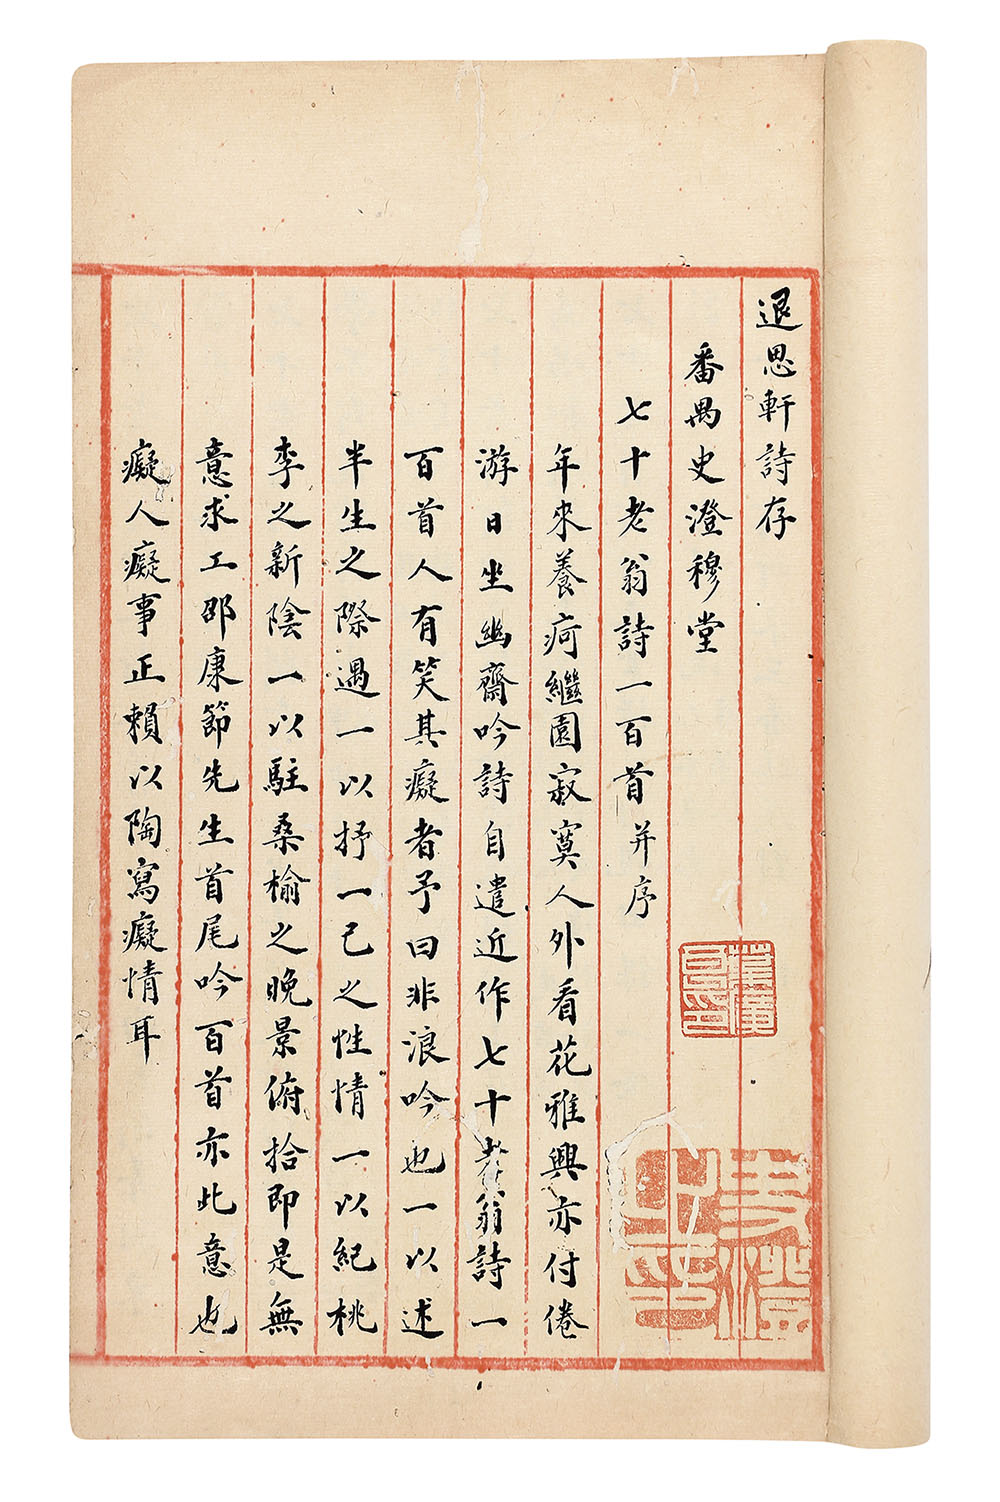 退思軒詩存
番禺史澄穆堂
七十老翁詩一百首并序
年來養疴繼園寂寞人外看花雅興亦付倦
游日坐幽齋吟詩自遣近作七十老翁詩一
百首人有笑其癡者予曰非浪吟也一以述
半生之際遇一以抒一己之性情一以紀桃
李之新陰一以駐桑榆之晚景俯拾即是無
意求工邵康節先生首尾吟百首亦此意也
癡人癡事正賴以陶寫癡情耳
史澄之印